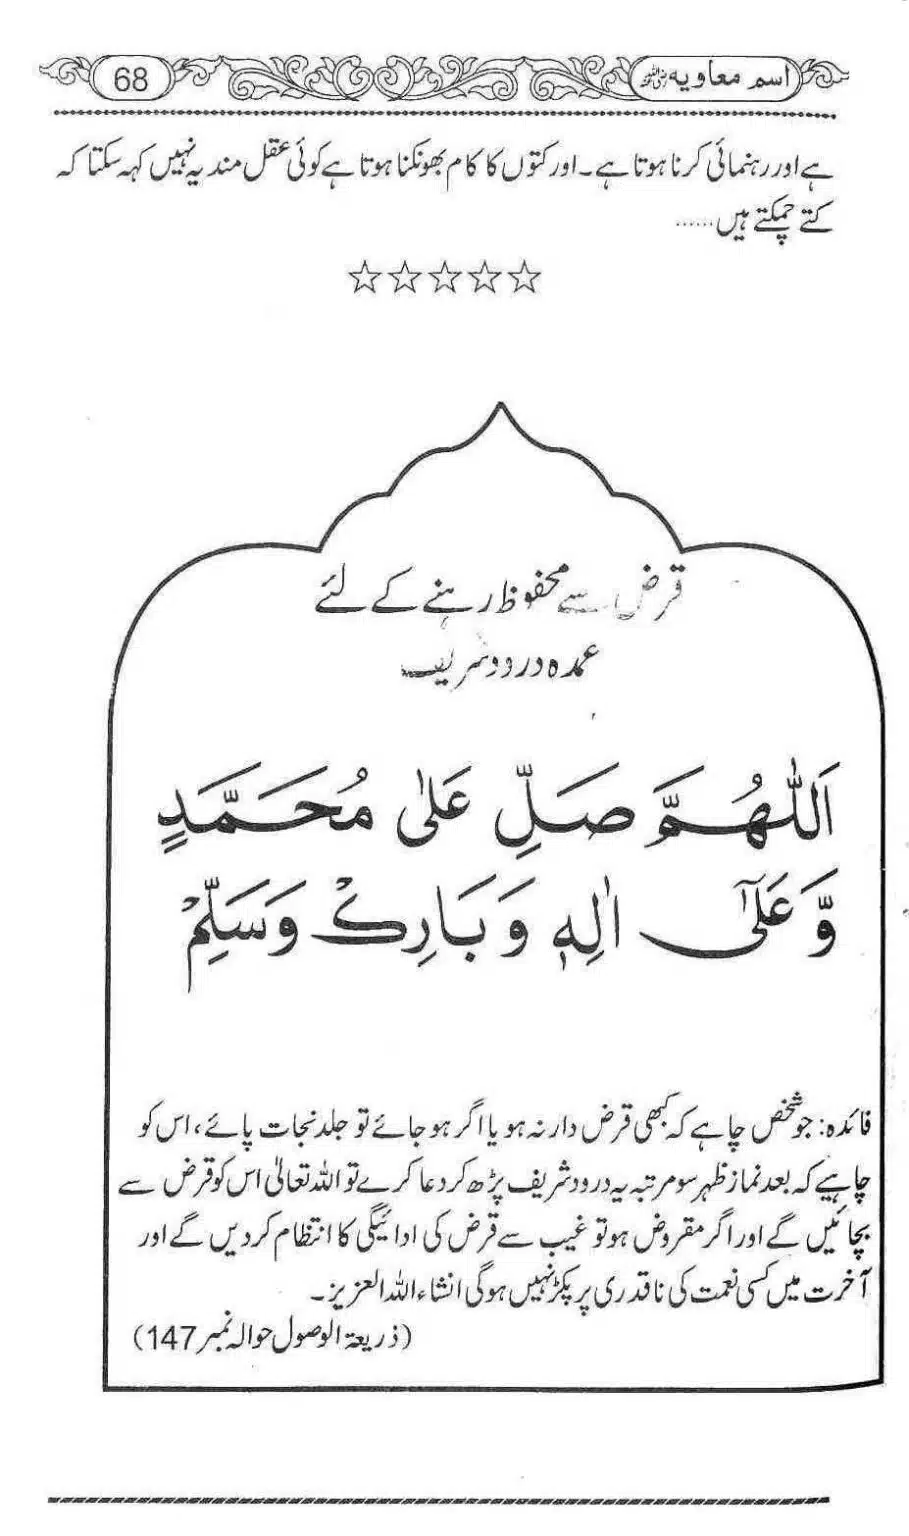 اسم معاویہ رضی اللہ عنہ
68
ہے اور رہنمائی کرنا ہوتا ہے۔ اور کتوں کا کام بھونکنا ہوتا ہے کوئی عقل مند یہ نہیں کہہ سکتا کہ
کتے چمکتے ہیں ......
☆☆☆☆☆
قرض سے محفوظ رہنے کے لئے
عمدہ درود شریف
اَللّٰهُمَّ صَلِّ عَلٰى مُحَمَّدٍ
وَّعَلٰٓى اٰلِهٖ وَبَارِكْ وَسَلِّمْ
فائدہ: جو شخص چاہے کہ کبھی قرض دار نہ ہو یا اگر ہو جائے تو جلد نجات پائے، اس کو
چاہیے کہ بعد نماز ظہر سو مرتبہ یہ درود شریف پڑھ کر دعا کرے تو اللہ تعالیٰ اس کو قرض سے
بچائیں گے اور اگر مقروض ہو تو غیب سے قرض کی ادائیگی کا انتظام کر دیں گے اور
آخرت میں کسی نعمت کی ناقدری پر پکڑ نہیں ہوگی انشاء اللہ العزیز۔
(ذریعۃ الوصول حوالہ نمبر 147)